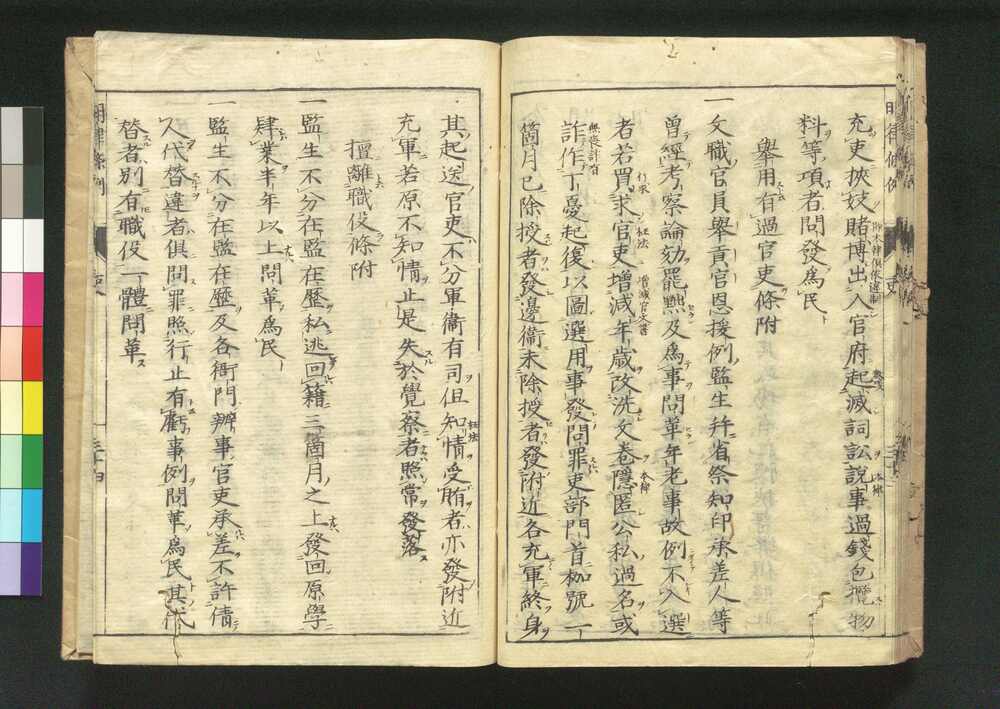 充吏挾妓賭博出入官府起滅詞訟說事過錢包攬物
料等項者問發爲民
舉用有過官吏條附
一文職官員舉貢官恩援例監生幷省祭知印承差人等
曾經考察論劾罷黜及爲事問革年老事故例不入選
者若買求官吏增減年歲改洗文卷隱匿公私過名或
詐作丁憂起復以圖選用事發問罪吏部門首枷號一
箇月已除授者發邊衞未除授者發附近各充軍終身
其起送官吏不分軍衞有司但知情受賄者亦發附近
充軍若原不知情止是失於覺察者照常發落
擅離職役條附
一監生不分在監在歷私逃回籍三箇月之上發回原學
肄業半年以上問革爲民
一監生不分在監在歷及各衙門辦事官吏承差不許倩
人代替違者俱問罪照行止有虧事例問革爲民其代
替者別有職役一體問革
明律條例
吏
三十四